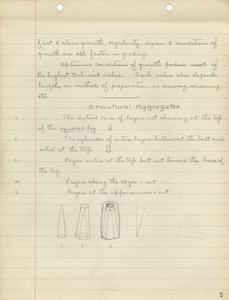 fast & slow growth, regularity, region & conditions of
growth are all factors in grading.
Optimum conditions of growth produce wood of
the highest technical value. Each value also depends
largely on methods of preparation, as sawing, seasoning,
etc.
Structural Aggregates
1. The central cone of layers not showing at the top
of the squared log
2. The cylinder of entire layers hollow at the butt and
solid at the top.
3. Layers entire at the top but cut toward the base of
the log.
4. Layers along the edges - cut
5. Layers at the upper corners - cut
1. 2. 3.
3